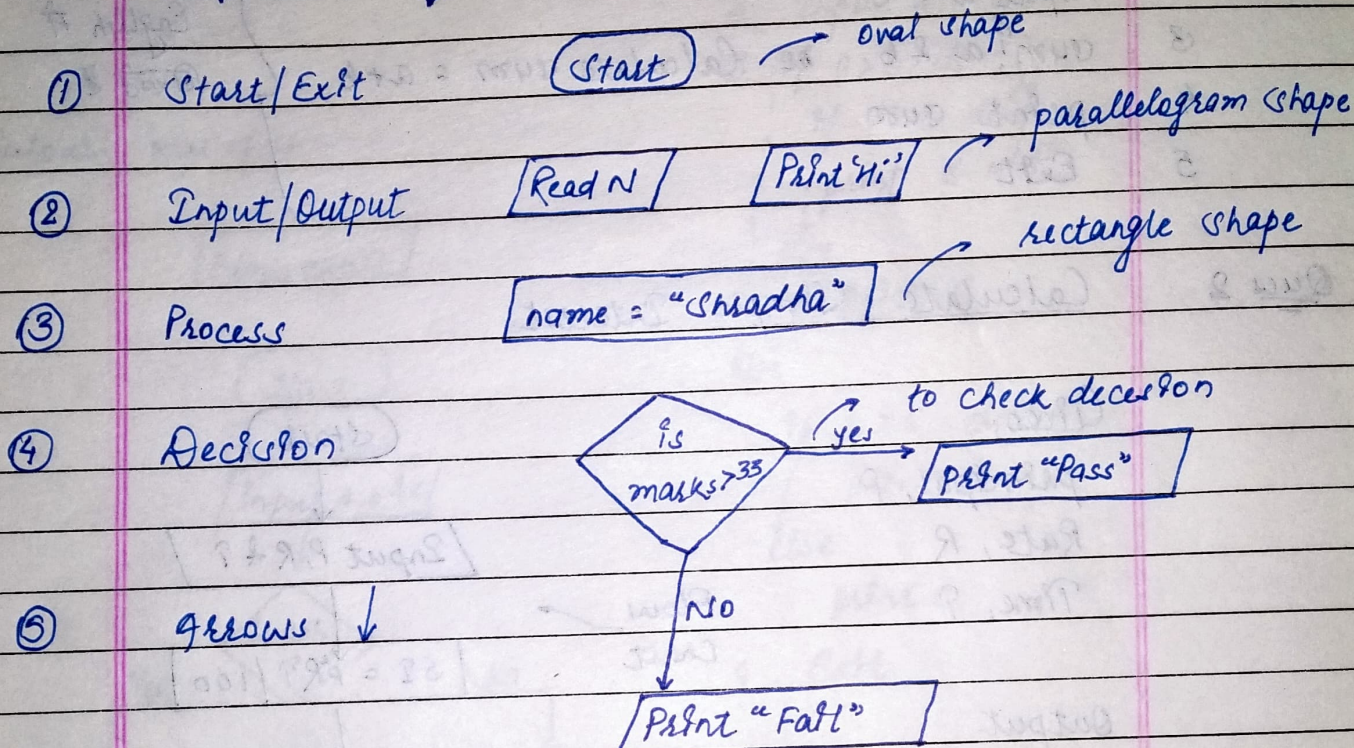 ① Start/Exit Start oval shape
② Input/Output Read N Print 'Hi' parallelogram shape
③ Process name = "Shradha" rectangle shape
④ Decision is marks>33 yes to check decesion
Print "Pass"
⑤ Arrows ↓ NO
Print "Fail"